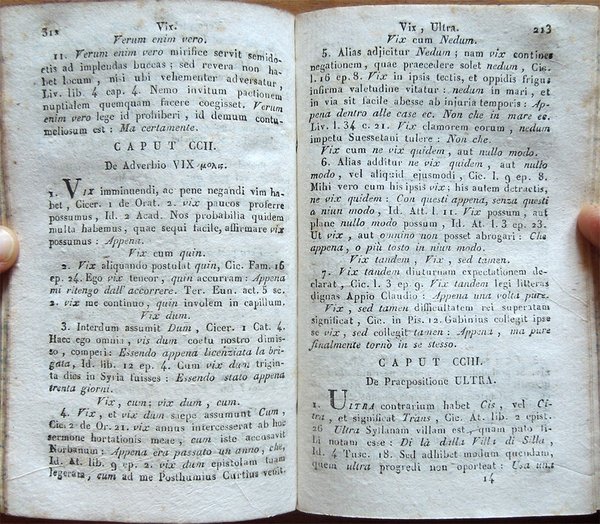 312 Vix.
Verum enim vero.
11. Verum enim vero mirifice servit semido-
ctis ad implendas buccas; sed revera non ha-
bet locum, nisi ubi vehementer adversatur,
Liv. lib. 4 cap. 4. Nemo invitum pactionem
nuptialem quemquam facere coegisset. Verum
enim vero lege id prohiberi, id demum contu-
meliosum est: Ma certamente.
CAPUT CCII.
De Adverbio VIX μολις.
1. Vix imminuendi, ac pene negandi vim ha-
bet, Cicer. 1 de Orat. 2. vix paucos proferre
possumus, Id. 2 Acad. Nos probabilia quidem
multa habemus, quae sequi facile, affirmare vix
possumus: Appena.
Vix cum quin.
2. Vix aliquando postulat quin, Cic. Fam. 16
ep. 24. Ego vix teneor, quin accurram: Appena
mi ritengo dall'accorrere. Ter. Eun. act. 5 sc.
2. vix me continuo, quin involem in capillum.
Vix dum.
3. Interdum assumit Dum, Cicer. 1 Cat. 4.
Haec ego omnia, vis dum coetu nostro dimis-
so, comperi: Essendo appena licenziata la bri-
gata, Id. lib. 12 ep. 4. Cum vix dum trigin-
ta dies in Syria fuisses: Essendo stato appena
trenta giorni.
Vix, cum; vix dum, cum.
4. Vix, et vix dum saepe assumunt Cum,
Cic. 2 de Or. 21. vix annus intercesserat ab hoc
sermone hortationis meae, cum iste accusavit
Norbanum: Appena era passato un anno, che,
Id. At. lib. 9 ep. 2. vix dum epistolam tuam
legeram, cum ad me Posthumius Curtius venit.
Vix, Ultra. 213
Vix cum Nedum.
5. Alias adjicitur Nedum; nam vix continet
negationem, quae praecedere solet nedum, Cic.
l. 16 ep. 8. Vix in ipsis tectis, et oppidis frigus
infirma valetudine vitatur: nedum in mari, et
in via sit facile abesse ab injuria temporis: Ap-
pena dentro alle case ec. Non che in mare ec.
Liv. l. 34 c. 21. Vix clamorem eorum, nedum
impetu Suessetani tulere: Non che.
Vix cum ne vix quidem, aut nullo modo.
6. Alias additur ne vix quidem, aut nullo
modo, vel aliquid ejusmodi, Cic. l. 9 ep. 8.
Mihi vero cum his ipsis vix; his autem detractis,
ne vix quidem: Con questi appena, senza questi
a niun modo, Id. Att. l. 11. Vix possum, aut
plane nullo modo possum, Id At. l. 3 ep. 23.
Ut vix, aut omnino non posset abrogari: Che
appena, o più tosto in niun modo.
Vix tandem, Vix, sed tamen.
7. Vix tandem diuturnam expectationem de-
clarat, Cic. l. 3 ep. 9. Vix tandem legi litteras
dignas Appio Claudio: Appena una volta pure.
Vix, sed tamen difficultatem rei superatam
significat, Cic. in Pis. 12. Gabinius collegit ipse
se vix, sed collegit tamen: Appena, ma pure
finalmente tornò in se stesso.
CAPUT CCIII.
De Praepositione ULTRA.
1. Ultra contrarium habet Cis, vel Ci-
tra, et significat Trans, Cic. At. lib. 2 epist.
26 Ultra Syllanam villam est, quam puto ti-
bi notam esse: Di là dalla Villa di Silla,
Id. 4 Tusc. 18. Sed adhibet modum quendam,
quem ultra progredi non oporteat: Una
14